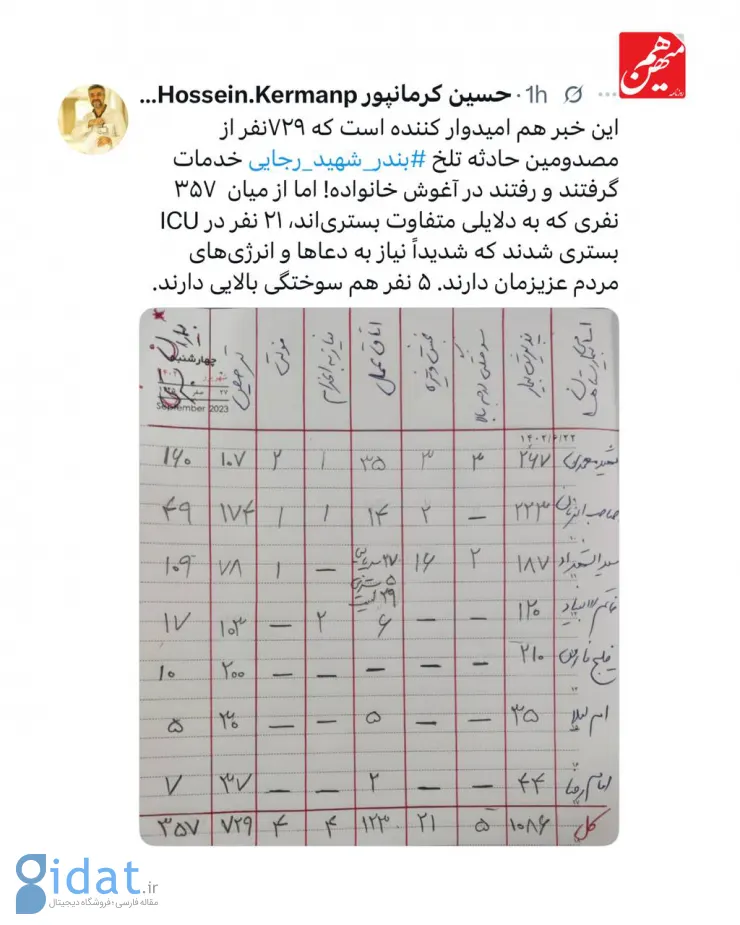 هم میهن
روزنامه
حسین کرمانپور Hossein.Kermanp... · 1h
این خبر هم امیدوار کننده است که ۷۲۹نفر از
مصدومین حادثه تلخ #بندر_شهید_رجایی خدمات
گرفتند و رفتند در آغوش خانواده! اما از میان ۳۵۷
نفری که به دلایلی متفاوت بستری‌اند، ۲۱ نفر در ICU
بستری شدند که شدیداً نیاز به دعاها و انرژی‌های
مردم عزیزمان دارند. ۵ نفر هم سوختگی بالایی دارند.
اتاق عمل نیاز به اعزام فوتی ترخیص
چهارشنبه
September 2023
۱۴۰۲/۶/۲۲
۲۶۷ ۳ ۳ ۳۵ ۱ ۲ ۱۰۷ ۱۶۰
صاحب الزمان ۲۲۳ — ۲ ۱۴ ۱ ۱ ۱۷۴ ۴۹
سیدالشهداء ۱۸۷ ۲ ۱۶ — ۱ ۷۸ ۱۰۹
۱۲۰ — — ۶ ۲ — ۱۰۳ ۱۷
خلیج فارس ۲۱۰ — — — — — ۲۰۰ ۱۰
ام لیلا ۳۵ — — ۵ — — ۳۰ ۵
امام رضا ۴۴ — — ۲ — — ۳۷ ۷
کل ۱۰۸۶ ۵ ۲۱ ۱۲۳ ۴ ۴ ۷۲۹ ۳۵۷
gidat.ir
مقاله فارسی؛ فروشگاه دیجیتال